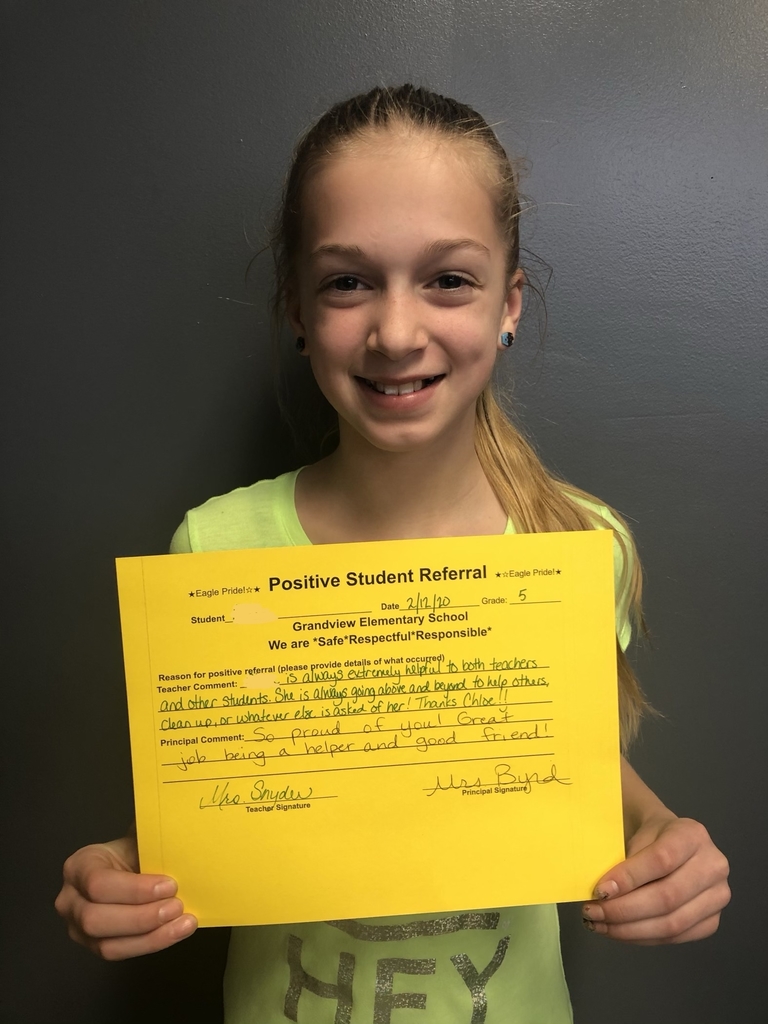 ★Eagle Pride!☆★ Positive Student Referral ★☆Eagle Pride!★
Student Date 2/12/20 Grade: 5
Grandview Elementary School
We are *Safe*Respectful*Responsible*
Reason for positive referral (please provide details of what occurred)
Teacher Comment: is always extremely helpful to both teachers
and other students. She is always going above and beyond to help others,
clean up, or whatever else is asked of her! Thanks Chloe!!
Principal Comment: So proud of you! Great
job being a helper and good friend!
Mrs. Snyder Mrs Byrd
Teacher Signature Principal Signature
HEY